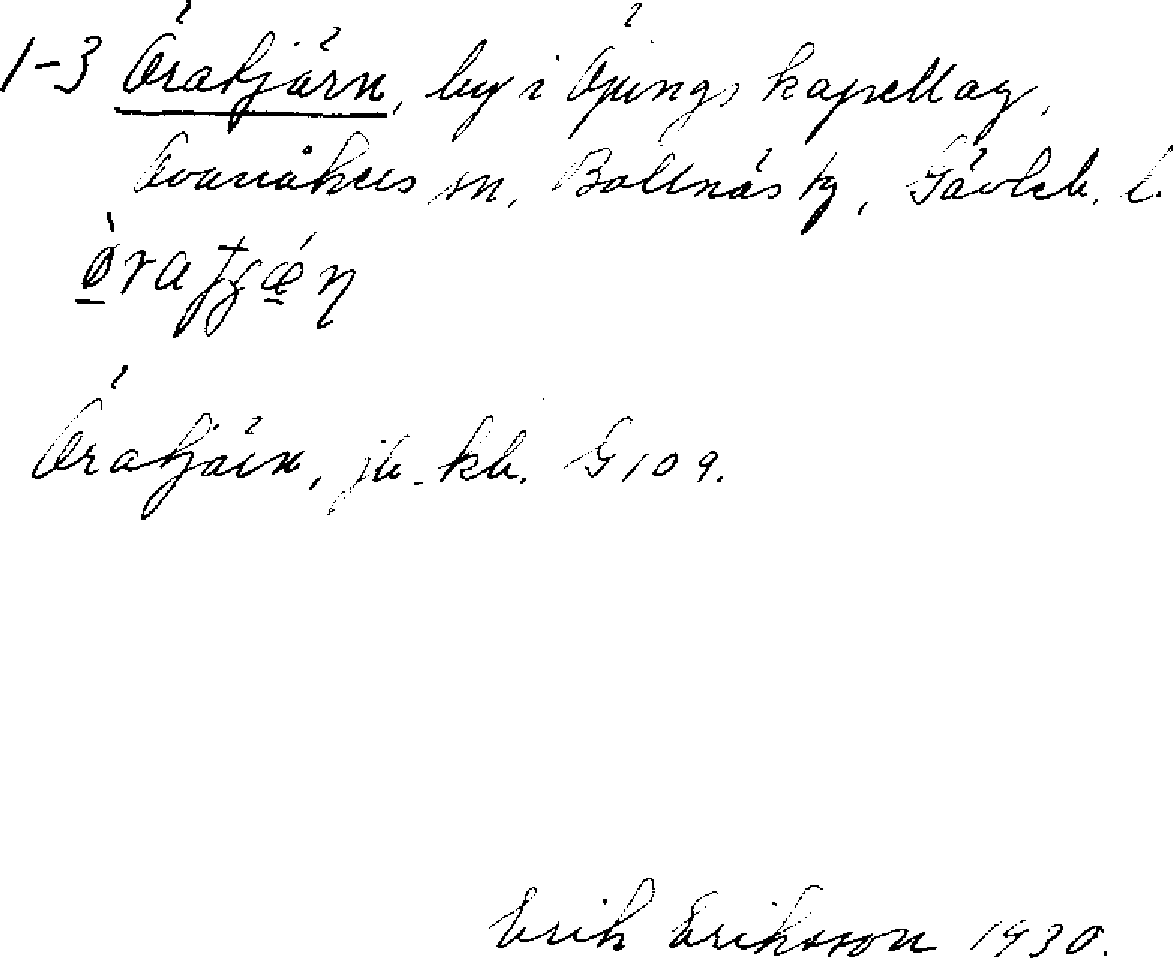 1-3 Öratjärn, by i Öjungs kapellag,
Ovanåkers sn, Bollnäs tg, Gävleb. l.
Öratjärn, jb. kb. G 109.
Erik Eriksson 1930.